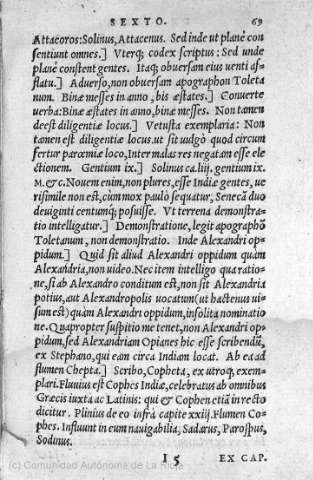 SEXTO. 69
Attacoros: Solinus, Attacenus. Sed inde ut planè con
sentiunt omnes.] Vterq; codex scriptus: Sed unde
planè constent gentes. Itaq; obuersam eius uenti af-
flatu.] Aduerso, non obuersam apographon Toleta
num. Binæ messes in anno, bis æstates.] Conuerte
uerba: Binæ æstates in anno, binæ messes. Non tamen
deest diligentiæ locus.] Vetusta exemplaria: Non
tamen est diligentiæ locus. ut sit uulgò quod circum
fertur parœmiæ loco, Inter malas res negatam esse ele
ctionem. Gentium ix.] Solinus ca. liij. gentium ix.
M. & c. Nouem enim, non plures, esse Indiæ gentes, ue
risimile non est, cùm mox paulò sequatur, Senecã duo
deuiginti centumq; posuisse. Vt terrena demonstra-
tio intelligatur.] Demonstratione, legit apographõ
Toletanum, non demonstratio. Inde Alexandri op-
pidum.] Quid sit aliud Alexandri oppidum quàm
Alexandria, non uideo. Nec item intelligo qua ratio-
ne, si ab Alexandro conditum est, non sit Alexandria
potius, aut Alexandropolis uocatum (ut hactenus ui-
sum est) quàm Alexandri oppidum, insolita nominatio
ne. Quapropter suspitio me tenet, non Alexandri op-
pidum, sed Alexandriam Opianes hic esse scribendũ,
ex Stephano, qui eam circa Indiam locat. Ab ea ad
flumen Chepta.] Scribo, Copheta, ex utroq; exem-
plari. Fluuius est Cophes Indiæ, celebratus ab omnibus
Græcis iuxta ac Latinis: qui & Cophen etiã in recto
dicitur. Plinius de eo infrà capite xxiij. Flumen Co-
phes. Influunt in eum nauigabilia, Sadarus, Parosspus,
Sodinus.
I 5 EX CAP.
(c) Comunidad Autónoma de La Rioja